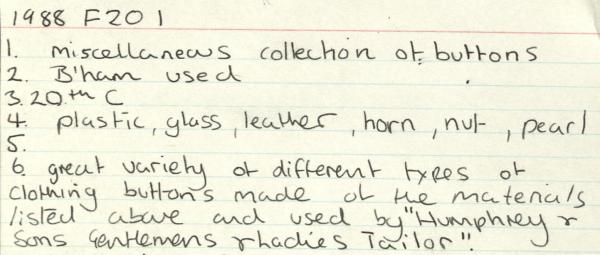 1988 F20 1
1. miscellaneous collection of buttons
2. B'ham used
3. 20th C
4. plastic, glass, leather, horn, nut, pearl
5.
6. great variety of different types of
clothing buttons made of the materials
listed above and used by "Humphrey &
Sons Gentlemens & Ladies Tailor".